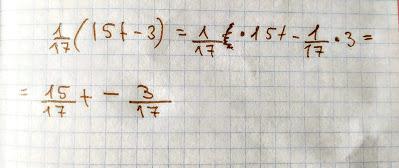 1/17 (15t - 3) = 1/17 · 15t - 1/17 · 3 =
= 15/17 t - 3/17